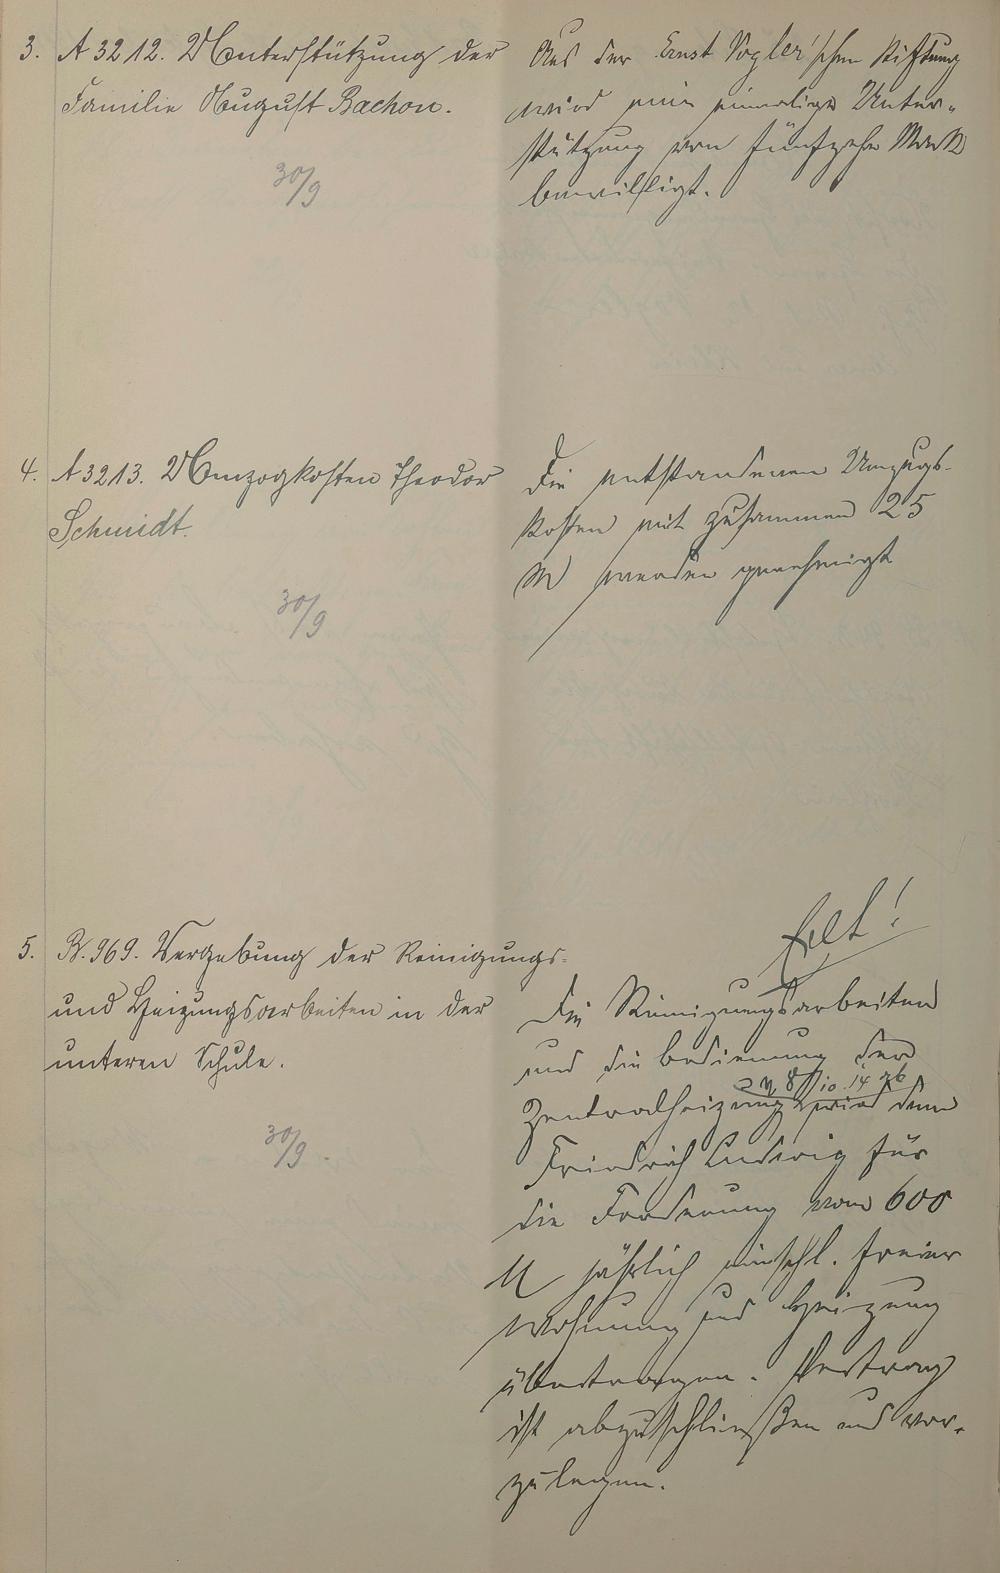 3. A 3212. Unterstützung der
Familie August Bachon.
30/9
Aus der Ernst Vogler'schen Stiftung
wird eine einmalige Unter-
stützung von fünfzehn Mark
bewilligt.
4. A 3213. Umzugkosten Theodor
Schmidt.
30/9
Die entstandenen Umzugs-
kosten mit zusammen 25
M werden genehmigt
5. B. 969. Vergebung der Reinigungs-
und Heizungsarbeiten in der
unteren Schule.
30/9.
Die Reinigungsarbeiten
und die Bedienung der
Zentralheizung wird dem
Friedrich Ludwig für
die Forderung von 600
M jährlich einschl. freier
Wohnung und Heizung
übertragen. Vertrag
ist abzuschließen und vor-
zulegen.